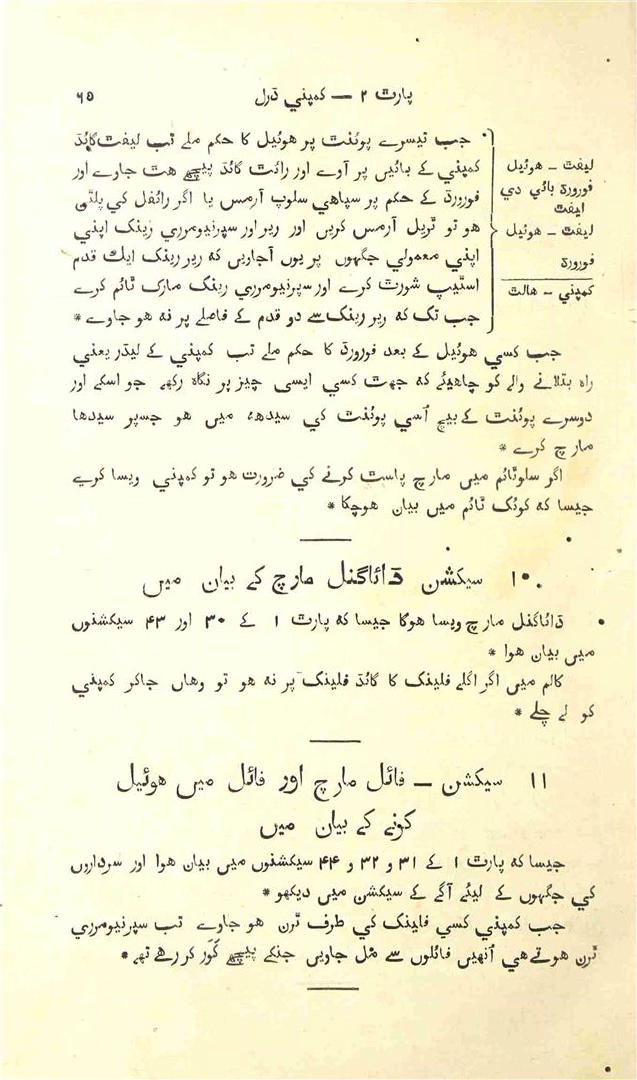 پارٹ ۲ — کمپني ڈرل ۶۵
لیفٹ - هوئیل
فورورڈ بائي دي
لیفٹ
لیفٹ - هوئیل
فورورڈ
کمپني - هالٹ
جب تیسرے پوئنٹ پر هوئیل کا حکم ملے تب لیفٹ گائڈ
کمپني کے بائیں پر آوے اور رائٹ گائڈ پیچھے هٹ جاوے اور
فورورڈ کے حکم پر سپاهي سلوپ آرمس یا اگر رائفل کي پلٹني
هو تو ٹریل آرمس کریں اور ریر اور سپرنیومرري رینک اپني
اپني معمولي جگہوں پر یوں آجاریں که ریر رینک ایك قدم
اسٹیپ شورٹ کرے اور سپرنیومرري رینک مارک ٹائم کرے
جب تک که ریر رینک سے دو قدم کے فاصلے پر نه هو جاوے *
جب کسي هوئیل کے بعد فورورڈ کا حکم ملے تب کمپني کے لیڈر یعني
راه بتلانے والے کو چاهیئے که جهٹ کسي ایسي چیز پر نگاه رکھے جو اسکے اور
دوسرے پوئنٹ کے بیچ اُسي پوئنٹ کي سیدهه میں هو جسپر سیدها
مارچ کرے *
اگر سلوٹائم میں مارچ پاسٹ کرنے کي ضرورت هو تو کمپني ویسا کرے
جیسا که کوئک ٹائم میں بیان هوچکا *
۱۰ سیکشن ڈائاگنل مارچ کے بیان میں
ڈائاگنل مارچ ویسا هوگا جیسا که پارٹ ۱ کے ۳۰ اور ۴۳ سیکشنوں
میں بیان هوا *
کالم میں اگر اگلے فلینک کا گائڈ فلینک پر نه هو تو وهاں جاکر کمپني
کو لے چلے *
۱۱ سیکشن - فائل مارچ اور فائل میں هوئیل
کرنے کے بیان میں
جیسا که پارٹ ۱ کے ۳۱ و ۳۲ و ۴۴ سیکشنوں میں بیان هوا اور سرداروں
کي جگہوں کے لیئے آگے کے سیکشن میں دیکھو *
جب کمپني کسي فلینک کي طرف ٹرن هو جاوے تب سپرنیومرري
ٹرن هوتے هي اُنهیں فائلوں سے مل جاویں جنکے پیچھے کَور کر رهے تھے *